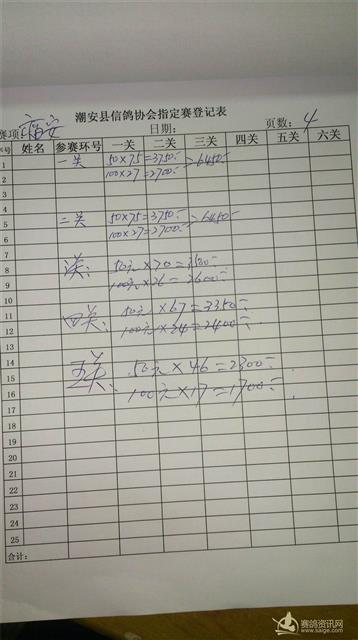 潮安县信鸽协会指定赛登记表
赛项: 福安 日期: 页数: 4
序号 姓名 参赛环号 一关 二关 三关 四关 五关 六关
1 一关 50×75=3750 >6450
2 100×27=2700
3
4
5 二关 50×75=3750 >6450
6 100×27=2700
7
8 50元×70=3500
9 100元×26=2600
10
11 四关 50元×67=3350
12 100元×24=2400
13
14
15 五关 50元×46=2300
16 100元×17=1700
17
18
19
20
21
22
23
24
25
合计:
赛鸽资讯网
www.saige.com